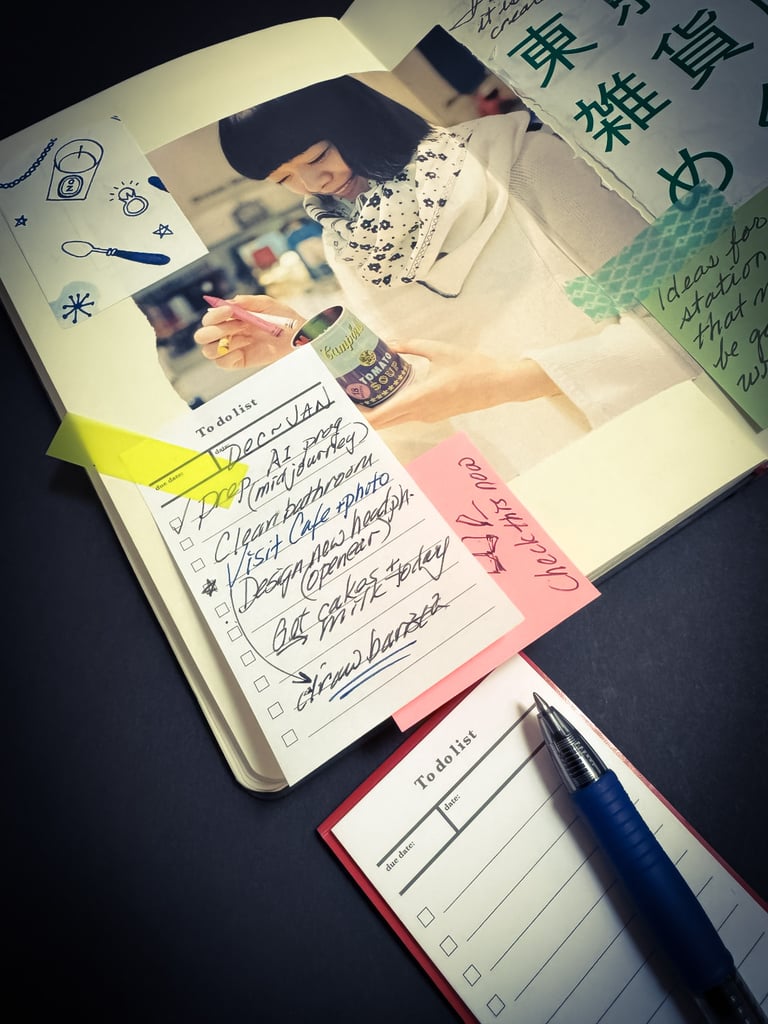 it is
crea
東京
雑貨
め
Ideas for
station
that n
be go
wr
Campbell's
TOMATO
SOUP
To do list
due date:
date:
Dec ~ JAN
Prep AI prog
(midjourney)
Clean bathroom
Visit Cafe + photo
Design new headph.
(openear)
Got cakes +
milk today
draw barista
Check this now
To do list
due date:
date: